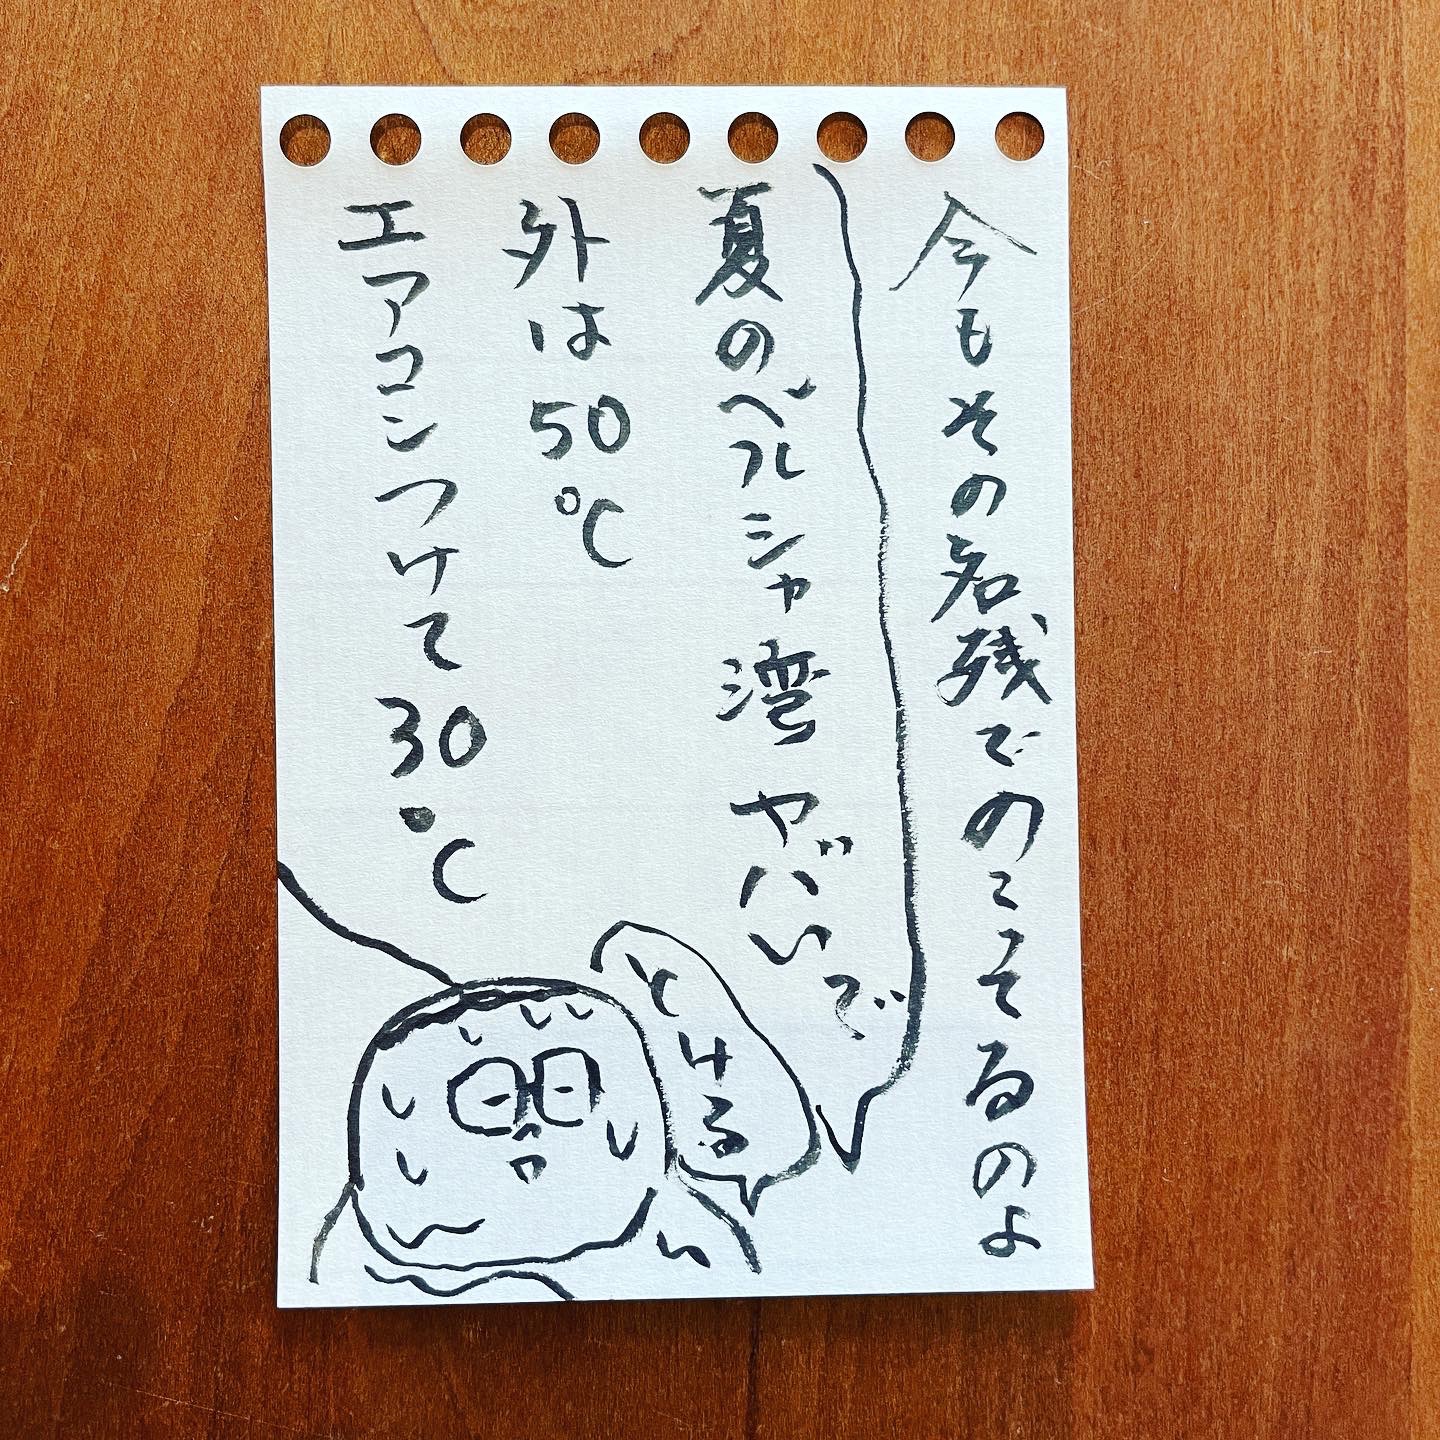 今もその名残でのこそるのよ
夏のペルシャ湾ヤバいで
外は50℃
エアコンつけて30℃
とける